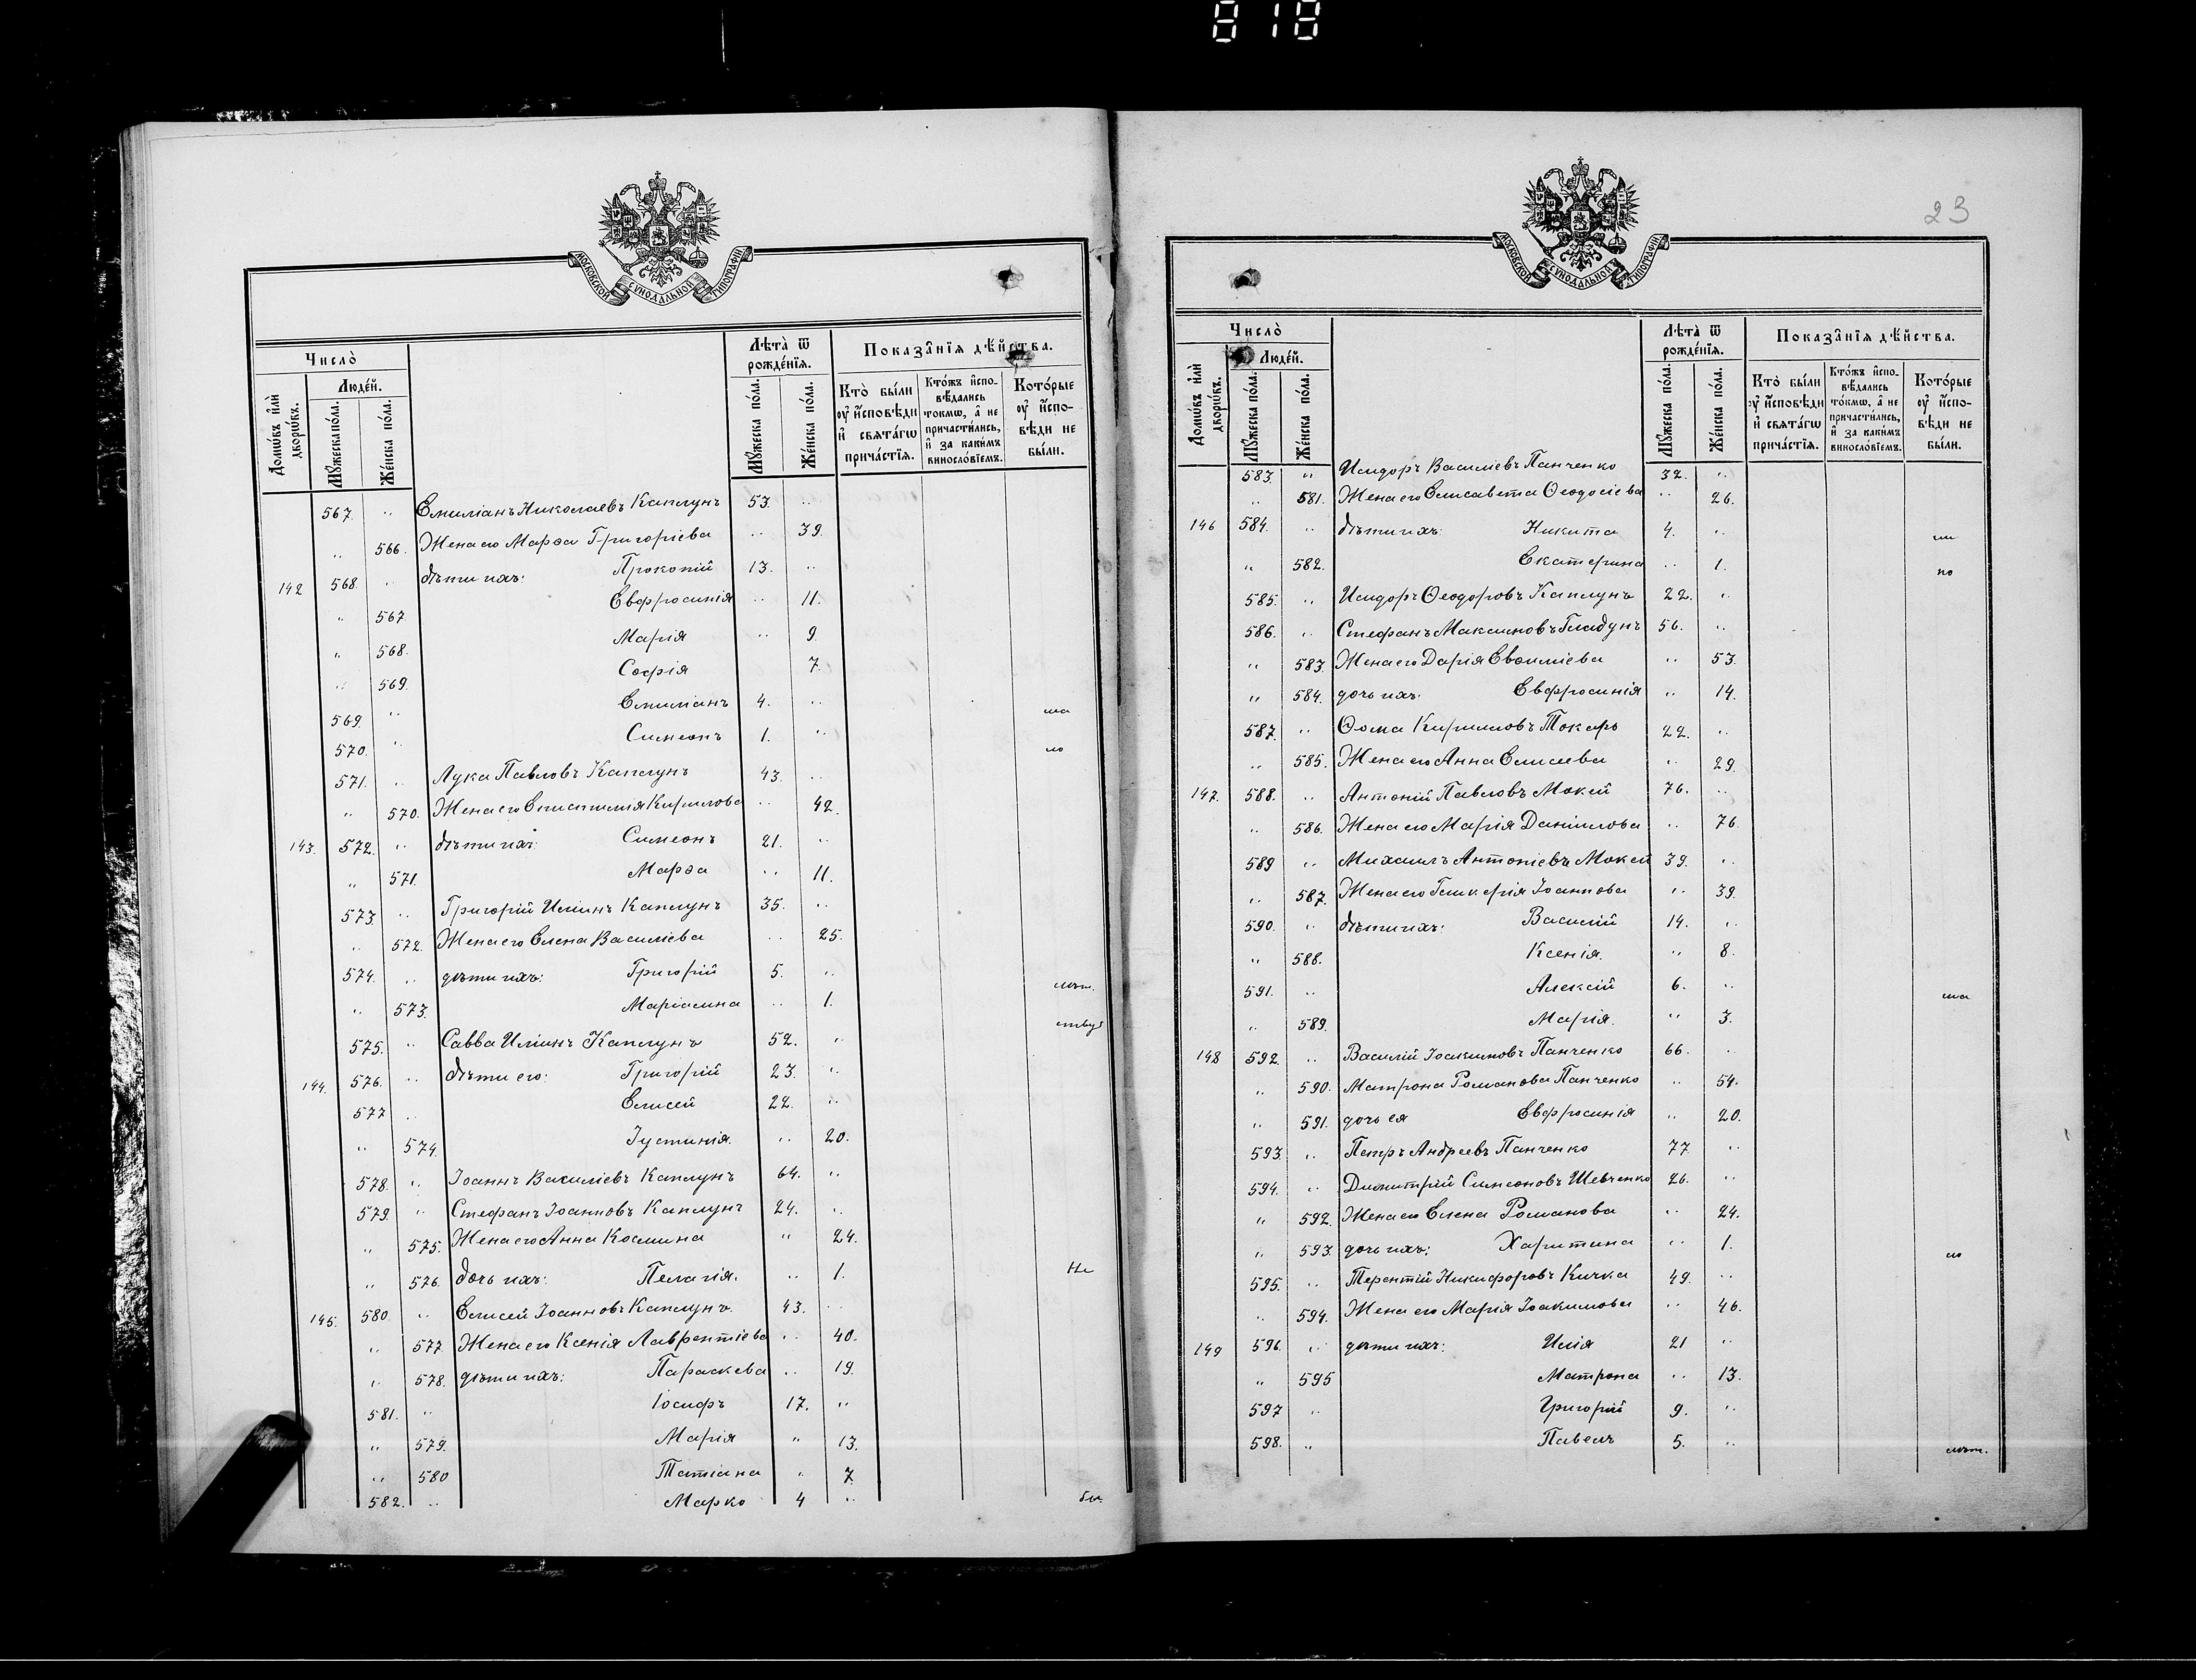 810
МОСКОВСКОЙ СѴНОДАЛЬНОЙ ТИПОГРАФІИ
Число̀
Людéй.
Домѡ́въ и҆лѝ дворѡ́въ.
Мꙋ́жеска по́ла.
Же́нска по́ла.
Лѣта̀ ѿ рожде́нїѧ.
Мꙋ́жеска по́ла.
Же́нска по́ла.
Показа̂нїѧ дѣ́йства.
Кто̀ бы́ли ᲂу҆ и҆́сповѣди и҆ свѧта́гѡ прича́стїѧ.
Кто́жъ и҆спо-вѣ́дались то́кмѡ, а҆ не причасти́лись, и҆ за каки́мъ винословїемъ.
Кото́рые ᲂу҆ и҆́спо-вѣди не бы́ли.
567. „ Емиліанъ Николаевъ Каплунъ 53. „
„ 566. Жена его Марѳа Григоріева „ 39.
142 568. „ дѣти ихъ: Прокопій 13. „
„ 567 Евфросинія „ 11.
„ 568. Марія „ 9.
„ 569. Софія 7.
569. „ Емиліанъ 4. „
570. „ Симеонъ 1. „
571. „ Лука Павловъ Каплунъ 43. „
„ 570. Жена его Кирилова „ 42.
143. 572. „ дѣти ихъ: Симеонъ 21. „
„ 571. Марѳа „ 11.
573. „ Григорій Иліинъ Каплунъ 35. „
„ 572. Жена его Елена Василіева „ 25.
574. „ дѣти ихъ: Григорій 5. „
„ 573. Маріамна „ 1.
575. „ Савва Иліинъ Каплунъ 52. „
144. 576. „ дѣти его: Григорій 23. „
577 „ Елисей 22. „
„ 574. Іустинія. „ 20.
578. „ Іоаннъ Василіевъ Каплунъ 64. „
579. „ Стефанъ Іоанновъ Каплунъ 24. „
„ 575. Жена его Анна Космина „ 24.
„ 576. дочь ихъ: Пелагія. „ 1. Не
145. 580 „ Елисей Іоанновъ Каплунъ. 43. „
„ 577 Жена его Ксенія Лаврентіева „ 40.
„ 578. дѣти ихъ: Параскева „ 19.
581. „ Іосифъ 17. „
„ 579. Марія „ 13.
„ 580 Татіана „ 7
582. „ Марко 4 „ бы
23
МОСКОВСКОЙ СѴНОДАЛЬНОЙ ТИПОГРАФІИ
Число̀
Людéй.
Домѡ́въ и҆лѝ дворѡ́въ.
Мꙋ́жеска по́ла.
Же́нска по́ла.
Лѣта̀ ѿ рожде́нїѧ.
Мꙋ́жеска по́ла.
Же́нска по́ла.
Показа̂нїѧ дѣ́йства.
Кто̀ бы́ли ᲂу҆ и҆́сповѣди и҆ свѧта́гѡ прича́стїѧ.
Кто́жъ и҆спо-вѣ́дались то́кмѡ, а҆ не причасти́лись, и҆ за каки́мъ винословїемъ.
Кото́рые ᲂу҆ и҆́спо-вѣди не бы́ли.
583. „ Исидоръ Василіевъ Панченко 32. „
„ 581. Жена его Елисавета Ѳеодосіева „ 26.
146 584. „ дѣти ихъ: Никита 4. „ ли
„ 582. Екатерина „ 1. по
585. „ Исидоръ Ѳеодоровъ Каплунъ 22. „
586. „ Стефанъ Максимовъ Гладунъ 56. „
„ 583. Жена его Дарія Евѳиміева „ 53.
„ 584. дочь ихъ: Евфросинія „ 14.
587. „ Ѳома Кириловъ Токарь 22. „
„ 585. Жена его Анна Елисеева „ 29.
147. 588. „ Антоній Павловъ Мокій 76. „
„ 586. Жена его Марія Даніилова „ 76.
589 „ Михаилъ Антоніевъ Мокій 39. „
„ 587. Жена его Гликерія Іоаннова „ 39.
590. „ дѣти ихъ: Василій 14. „
„ 588. Ксенія. „ 8.
591. „ Алексій 6. „
„ 589. Марія. „ 3.
148 592. „ Василій Іоакимовъ Панченко 66. „
„ 590. Матрона Романова Панченко „ 54.
„ 591. дочь ея Евфросинія „ 20.
593. „ Петръ Андреевъ Панченко 77 „
594. „ Димитрій Симеоновъ Шевченко 26. „
„ 592. Жена его Елена Романова „ 24.
„ 593. дочь ихъ: Харитина „ 1.
595. „ Терентій Никифоровъ Кичка 49. „
„ 594. Жена его Марія Іоакимова „ 46.
149 596. „ дѣти ихъ: Илія 21 „
„ 595 Матрона „ 13.
597 „ Григорій 9. „
598. „ Павелъ 5. „